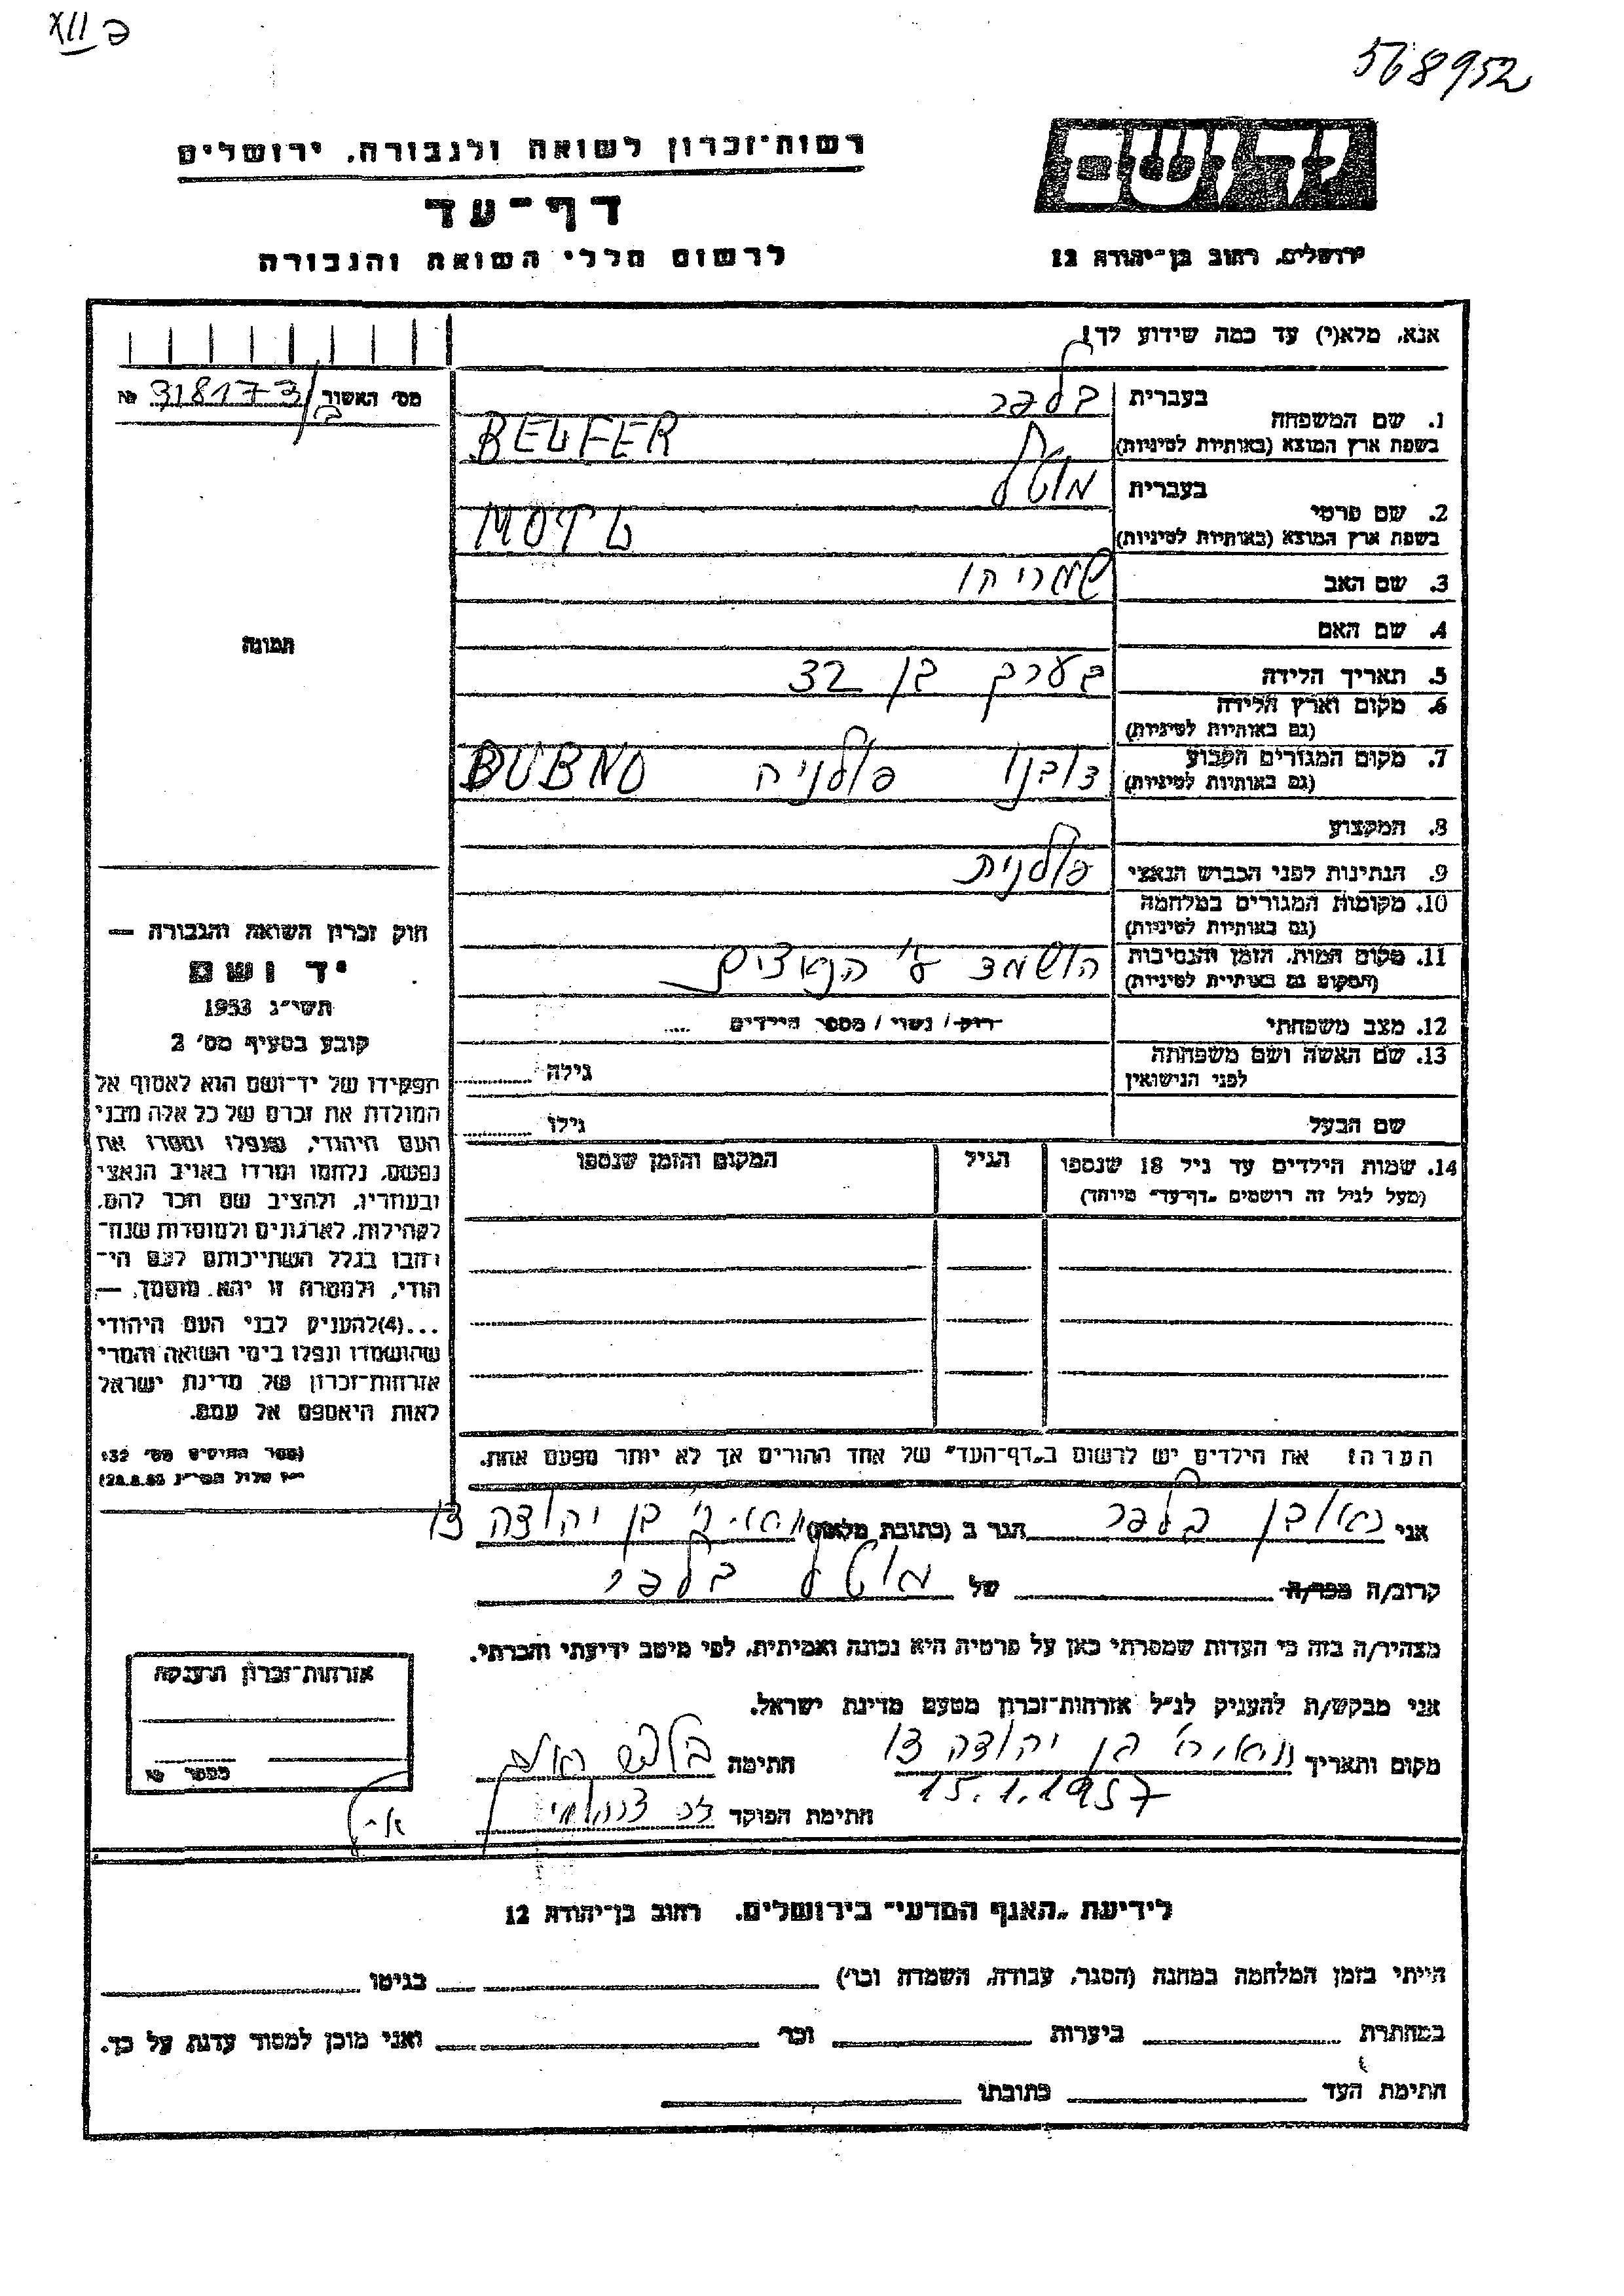 XII ב
568952
רשות־זכרון לשואה ולגבורה, ירושלים
דף־עד
לרשום חללי השואה והגבורה
יד ושם
ירושלים, רחוב בן־יהודה 12
אנא, מלא(י) עד כמה שידוע לך!
מס׳ האשור 318173 №
1. שם המשפחה
בעברית בלפר
בשפת ארץ המוצא (באותיות לטיניות) BELFER
2. שם פרטי
בעברית מוטל
בשפת ארץ המוצא (באותיות לטיניות) MOTL
3. שם האב שמריהו
4. שם האם
5. תאריך הלידה בערך בן 32
6. מקום וארץ הלידה
(גם באותיות לטיניות)
7. מקום המגורים הקבוע
(גם באותיות לטיניות) דובנו פולניה DUBNO
8. המקצוע
9. הנתינות לפני הכבוש הנאצי פולנית
10. מקומות המגורים במלחמה
(גם באותיות לטיניות)
11. מקום המות, הזמן והנסיבות
(המקום גם באותיות לטיניות) הושמד ע״י הנאצים
12. מצב משפחתי רוק / נשוי / מספר הילדים ....
13. שם האשה ושם משפחתה
לפני הנישואין גילה
שם הבעל גילו
14. שמות הילדים עד גיל 18 שנספו
(מעל לגיל זה רושמים „דף־עד״ מיוחד)
הגיל
המקום והזמן שנספו
תמונה
חוק זכרון השואה והגבורה —
יד ושם
תשי״ג 1953
קובע בסעיף מס׳ 2
תפקידו של יד־ושם הוא לאסוף אל
המולדת את זכרם של כל אלה מבני
העם היהודי, שנפלו ומסרו את
נפשם, נלחמו ומרדו באויב הנאצי
ובעוזריו, ולהציב שם וזכר להם,
לקהילות, לארגונים ולמוסדות שנח־
רבו בגלל השתייכותם לעם הי־
הודי, ולמטרה זו יהא מוסמך, —
...(4) להעניק לבני העם היהודי
שהושמדו ונפלו בימי השואה והמרי
אזרחות־זכרון של מדינת ישראל
לאות היאספם אל עמם.
(ספר החוקים מס׳ 132
28.8.53)
הערה: את הילדים יש לרשום ב„דף־העד״ של אחד ההורים אך לא יותר מפעם אחת.
אני ראובן בלפר הגר ב (כתובת מלאה) בן יהודה
קרוב/ה מכר/ה של מוטל בלפר
מצהיר/ה בזה כי העדות שמסרתי כאן על פרטיה היא נכונה ואמיתית, לפי מיטב ידיעתי והכרתי.
אני מבקש/ת להעניק לנ״ל אזרחות־זכרון מטעם מדינת ישראל.
מקום ותאריך בן יהודה חתימה
15.1.1957
חתימת הפוקד
אזרחות־זכרון הוענקה
מספר №
לידיעת „האגף המדעי״ בירושלים, רחוב בן־יהודה 12
הייתי בזמן המלחמה במחנה (הסגר, עבודה, השמדה וכו׳) בגיטו
במחתרת ביערות וכו׳ ואני מוכן למסור עדות על כך.
חתימת העד כתובתו